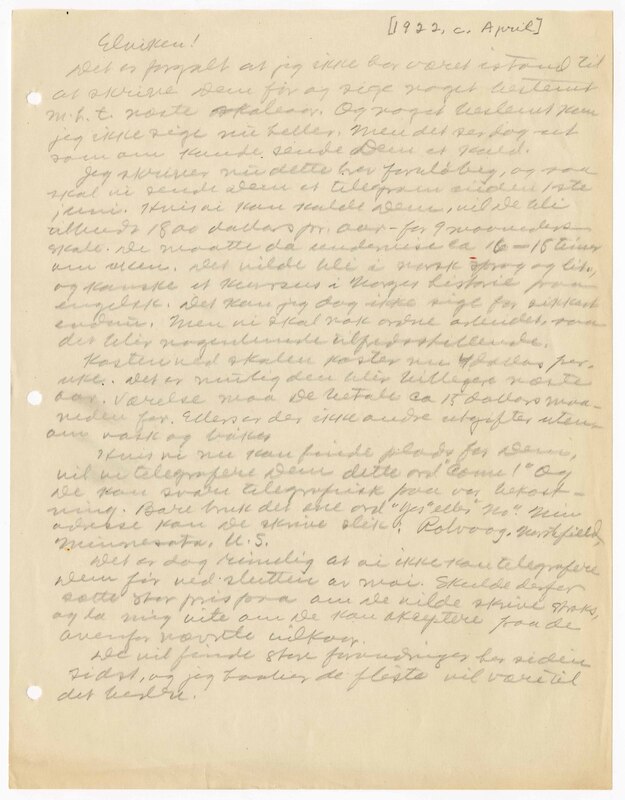 [1922, c. April]
Elviken!
Det er forgalt at jeg ikke har været istand til
at skrive Dem før og sige noget bestemt
m.h.t. næste skoleaar. Og noget bestemt kan
jeg ikke sige nu heller. Men det ser dog ut
som om kunde sende Dem et kald.
Jeg skriver nu dette her foreløbig, og saa
skal vi sende Dem et telegram inden 1ste
juni. Hvis vi kan kalde Dem, vil De bli
tilbudt 1800 dollars pr. aar - for 9 maaneders
skole. De maatte da undervise ca 16 — 18 timer
om uken. Det vilde bli i norsk sprog og lit.,
og kanske et kursus i Norges historie paa
engelsk. Det kan jeg dog ikke sige for sikkert
endnu. Men vi skal nok ordne arbeidet, saa
det blir nogenlunde tilfredsstillende.
Kosten ved skolen koster nu dollars per.
uke. Det er mulig den blir billigere næste
aar. Værelse maa De betale ca 15 dollars maa-
neden for. Ellers er der ikke andre utgifter uten-
om vask og bøker
Hvis vi nu kan finde plads for Dem,
vil vi telegrafere Dem dette ord "Come!" Og
De kan svare telegrafisk paa vor bekost-
ning. Bare bruk det ene ord "Yes" eller "No". Min
adresse kan De skrive slik: Rolvaag, Northfield,
Minnesota, U.S.
Det er dog rimelig at vi ikke kan telegrafere
Dem før ved slutten av mai. Skulde derfor
sætte stor pris paa om De vilde skrive straks,
og la mig vite om De kan akseptere paa de
ovenfor nævnte vilkaar.
De vil finde store forandringer her siden
sidst, og jeg haaber de fleste vil være til
det bedre.